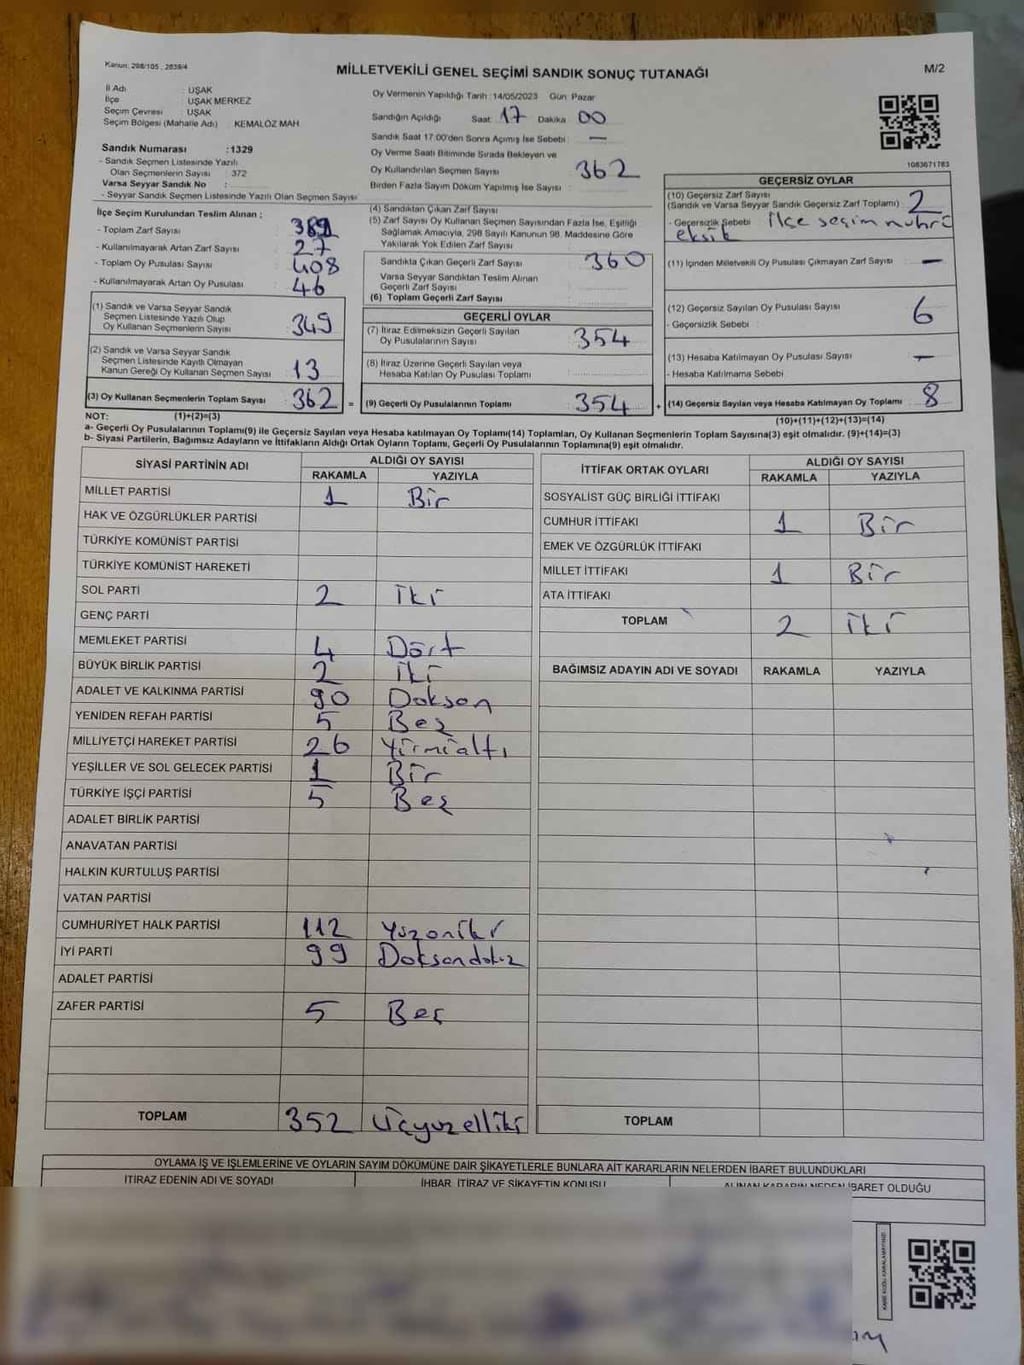 Kanun: 298/105 , 2839/4
MİLLETVEKİLİ GENEL SEÇİMİ SANDIK SONUÇ TUTANAĞI
M/2
İl Adı : UŞAK
İlçe : UŞAK MERKEZ
Seçim Çevresi : UŞAK
Seçim Bölgesi (Mahalle Adı) : KEMALÖZ MAH
Sandık Numarası :1329
- Sandık Seçmen Listesinde Yazılı
Olan Seçmenlerin Sayısı : 372
Varsa Seyyar Sandık No :
- Seyyar Sandık Seçmen Listesinde Yazılı Olan Seçmen Sayısı
Oy Vermenin Yapıldığı Tarih :14/05/2023 Gün: Pazar
Sandığın Açıldığı Saat 17 Dakika 00
Sandık Saat 17:00'den Sonra Açımış İse Sebebi : —
Oy Verme Saati Bitiminde Sırada Bekleyen ve
Oy Kullandırılan Seçmen Sayısı 362
Birden Fazla Sayım Döküm Yapılmış İse Sayısı :
1083671783
İlçe Seçim Kurulundan Teslim Alınan ;
- Toplam Zarf Sayısı
- Kullanılmayarak Artan Zarf Sayısı 27
- Toplam Oy Pusulası Sayısı 408
- Kullanılmayarak Artan Oy Pusulası 46
(1) Sandık ve Varsa Seyyar Sandık
Seçmen Listesinde Yazılı Olup
Oy Kullanan Seçmenlerin Sayısı 349
(2) Sandık ve Varsa Seyyar Sandık
Seçmen Listesinde Kayıtlı Olmayan
Kanun Gereği Oy Kullanan Seçmen Sayısı 13
(3) Oy Kullanan Seçmenlerin Toplam Sayısı 362 =
(4) Sandıktan Çıkan Zarf Sayısı
(5) Zarf Sayısı Oy Kullanan Seçmen Sayısından Fazla İse, Eşitliği
Sağlamak Amacıyla, 298 Sayılı Kanunun 98. Maddesine Göre
Yakılarak Yok Edilen Zarf Sayısı
Sandıkta Çıkan Geçerli Zarf Sayısı 360
Varsa Seyyar Sandıktan Teslim Alınan
Geçerli Zarf Sayısı
(6) Toplam Geçerli Zarf Sayısı
GEÇERLİ OYLAR
(7) İtiraz Edilmeksizin Geçerli Sayılan
Oy Pusulalarının Sayısı 354
(8) İtiraz Üzerine Geçerli Sayılan veya
Hesaba Katılan Oy Pusulası Toplamı
(9) Geçerli Oy Pusulalarının Toplamı 354 +
GEÇERSİZ OYLAR
(10) Geçersiz Zarf Sayısı
(Sandık ve Varsa Seyyar Sandık Geçersiz Zarf Toplamı) 2
- Geçersizlik Sebebi : İlçe seçim mührü
eksik
(11) İçinden Milletvekili Oy Pusulası Çıkmayan Zarf Sayısı —
(12) Geçersiz Sayılan Oy Pusulası Sayısı 6
- Geçersizlik Sebebi :
(13) Hesaba Katılmayan Oy Pusulası Sayısı —
- Hesaba Katılmama Sebebi
(14) Geçersiz Sayılan veya Hesaba Katılmayan Oy Toplamı 8
NOT: (1)+(2)=(3)
(10)+(11)+(12)+(13)=(14)
a- Geçerli Oy Pusulalarının Toplamı(9) ile Geçersiz Sayılan veya Hesaba katılmayan Oy Toplamı(14) Toplamları, Oy Kullanan Seçmenlerin Toplam Sayısına(3) eşit olmalıdır. (9)+(14)=(3)
b- Siyasi Partilerin, Bağımsız Adayların ve İttifakların Aldığı Ortak Oyların Toplamı, Geçerli Oy Pusulalarının Toplamına(9) eşit olmalıdır.
SİYASİ PARTİNİN ADI ALDIĞI OY SAYISI
RAKAMLA YAZIYLA
MİLLET PARTİSİ 1 Bir
HAK VE ÖZGÜRLÜKLER PARTİSİ
TÜRKİYE KOMÜNİST PARTİSİ
TÜRKİYE KOMÜNİST HAREKETİ
SOL PARTİ 2 İki
GENÇ PARTİ
MEMLEKET PARTİSİ 4 Dört
BÜYÜK BİRLİK PARTİSİ 2 İki
ADALET VE KALKINMA PARTİSİ 90 Doksan
YENİDEN REFAH PARTİSİ 5 Beş
MİLLİYETÇİ HAREKET PARTİSİ 26 Yirmialtı
YEŞİLLER VE SOL GELECEK PARTİSİ 1 Bir
TÜRKİYE İŞÇİ PARTİSİ 5 Beş
ADALET BİRLİK PARTİSİ
ANAVATAN PARTİSİ
HALKIN KURTULUŞ PARTİSİ
VATAN PARTİSİ
CUMHURİYET HALK PARTİSİ 112 Yüzoniki
İYİ PARTİ 99 Doksandokuz
ADALET PARTİSİ
ZAFER PARTİSİ 5 Beş
TOPLAM 352 Üçyüzelliki
İTTİFAK ORTAK OYLARI ALDIĞI OY SAYISI
RAKAMLA YAZIYLA
SOSYALİST GÜÇ BİRLİĞİ İTTİFAKI
CUMHUR İTTİFAKI 1 Bir
EMEK VE ÖZGÜRLÜK İTTİFAKI
MİLLET İTTİFAKI 1 Bir
ATA İTTİFAKI
TOPLAM 2 İki
BAĞIMSIZ ADAYIN ADI VE SOYADI RAKAMLA YAZIYLA
TOPLAM
OYLAMA İŞ VE İŞLEMLERİNE VE OYLARIN SAYIM DÖKÜMÜNE DAİR ŞİKAYETLERLE BUNLARA AİT KARARLARIN NELERDEN İBARET BULUNDUKLARI
İTİRAZ EDENİN ADI VE SOYADI İHBAR, İTİRAZ VE ŞİKAYETİN KONUSU ALINAN KARARIN NEDEN İBARET OLDUĞU